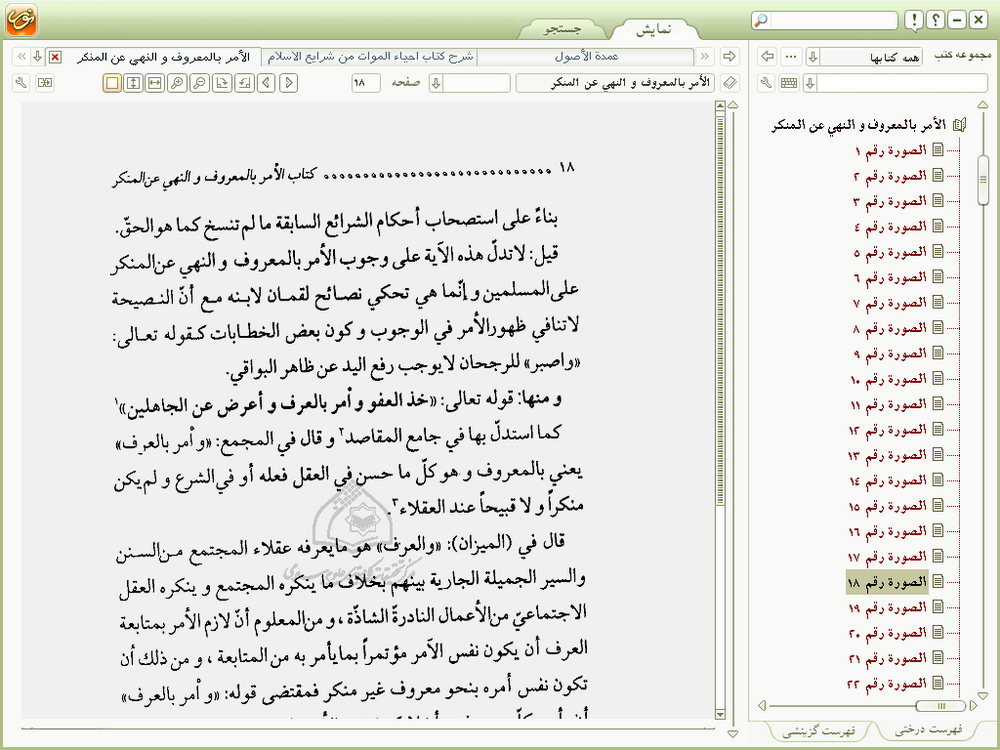 نمایش
جستجو
مجموعه کتب
همه کتابها
عمدة الأصول
شرح کتاب احیاء الموات من شرایع الاسلام
الأمر بالمعروف و النهي عن المنكر
الأمر بالمعروف و النهي عن المنكر
صفحه
١٨
الأمر بالمعروف و النهي عن المنكر
الصورة رقم ١
الصورة رقم ٢
الصورة رقم ٣
الصورة رقم ٤
الصورة رقم ٥
الصورة رقم ٦
الصورة رقم ٧
الصورة رقم ٨
الصورة رقم ٩
الصورة رقم ١٠
الصورة رقم ١١
الصورة رقم ١٢
الصورة رقم ١٣
الصورة رقم ١٤
الصورة رقم ١٥
الصورة رقم ١٦
الصورة رقم ١٧
الصورة رقم ١٨
الصورة رقم ١٩
الصورة رقم ٢٠
الصورة رقم ٢١
الصورة رقم ٢٢
فهرست درختی
فهرست گزینشی
١٨ ............................ كتاب الأمر بالمعروف و النهي عن‌المنكر
بناءً على استصحاب أحكام الشرائع السابقة ما لم تنسخ كما هو الحقّ.
قيل: لاتدلّ هذه الآية على وجوب الأمر بالمعروف و النهي عن‌المنكر
على‌المسلمين و إنّما هي تحكي نصائح لقمان لابنه مع أنّ النصيحة
لاتنافي ظهورالأمر في الوجوب و كون بعض الخطابات كقوله تعالى:
«واصبر» للرجحان لايوجب رفع اليد عن ظاهر البواقي.
و منها: قوله تعالى: «خذ العفو و أمر بالعرف و أعرض عن الجاهلين»١
كما استدلّ بها في جامع المقاصد٢ و قال في المجمع: «و أمر بالعرف»
يعني بالمعروف و هو كلّ ما حسن في العقل فعله أو في‌الشرع و لم‌يكن
منكراً و لا قبيحاً عند العقلاء٣.
قال في (الميزان): «والعرف» هو مايعرفه عقلاء المجتمع من‌السنن
والسير الجميلة الجارية بينهم بخلاف ما ينكره المجتمع و ينكره العقل
الاجتماعيّ من‌الأعمال النادرة الشاذّة، و من‌المعلوم أنّ لازم الأمر بمتابعة
العرف أن يكون نفس الآمر مؤتمراً بمايأمر به من المتابعة، و من ذلك أن
تكون نفس أمره بنحو معروف غير منكر فمقتضى قوله: «و أمر بالعرف»